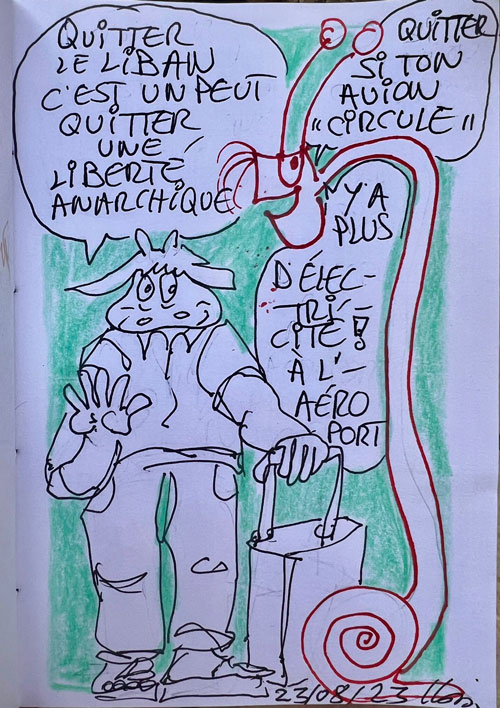 QUITTER
LE LIBAN
C'EST UN PEUT
QUITTER
UNE
LIBERTÉ
ANARCHIQUE
QUITTER
SI TON
AVION
"CIRCULE"
Y'A
PLUS
D'ÉLEC-
TRI-
CITÉ!
À L'-
AÉRO
PORT
23/08/23